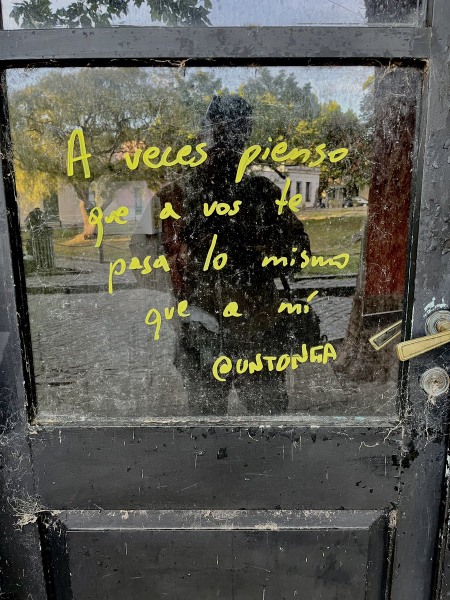 A veces pienso
que a vos te
pasa lo mismo
que a mí
@UNTONGA